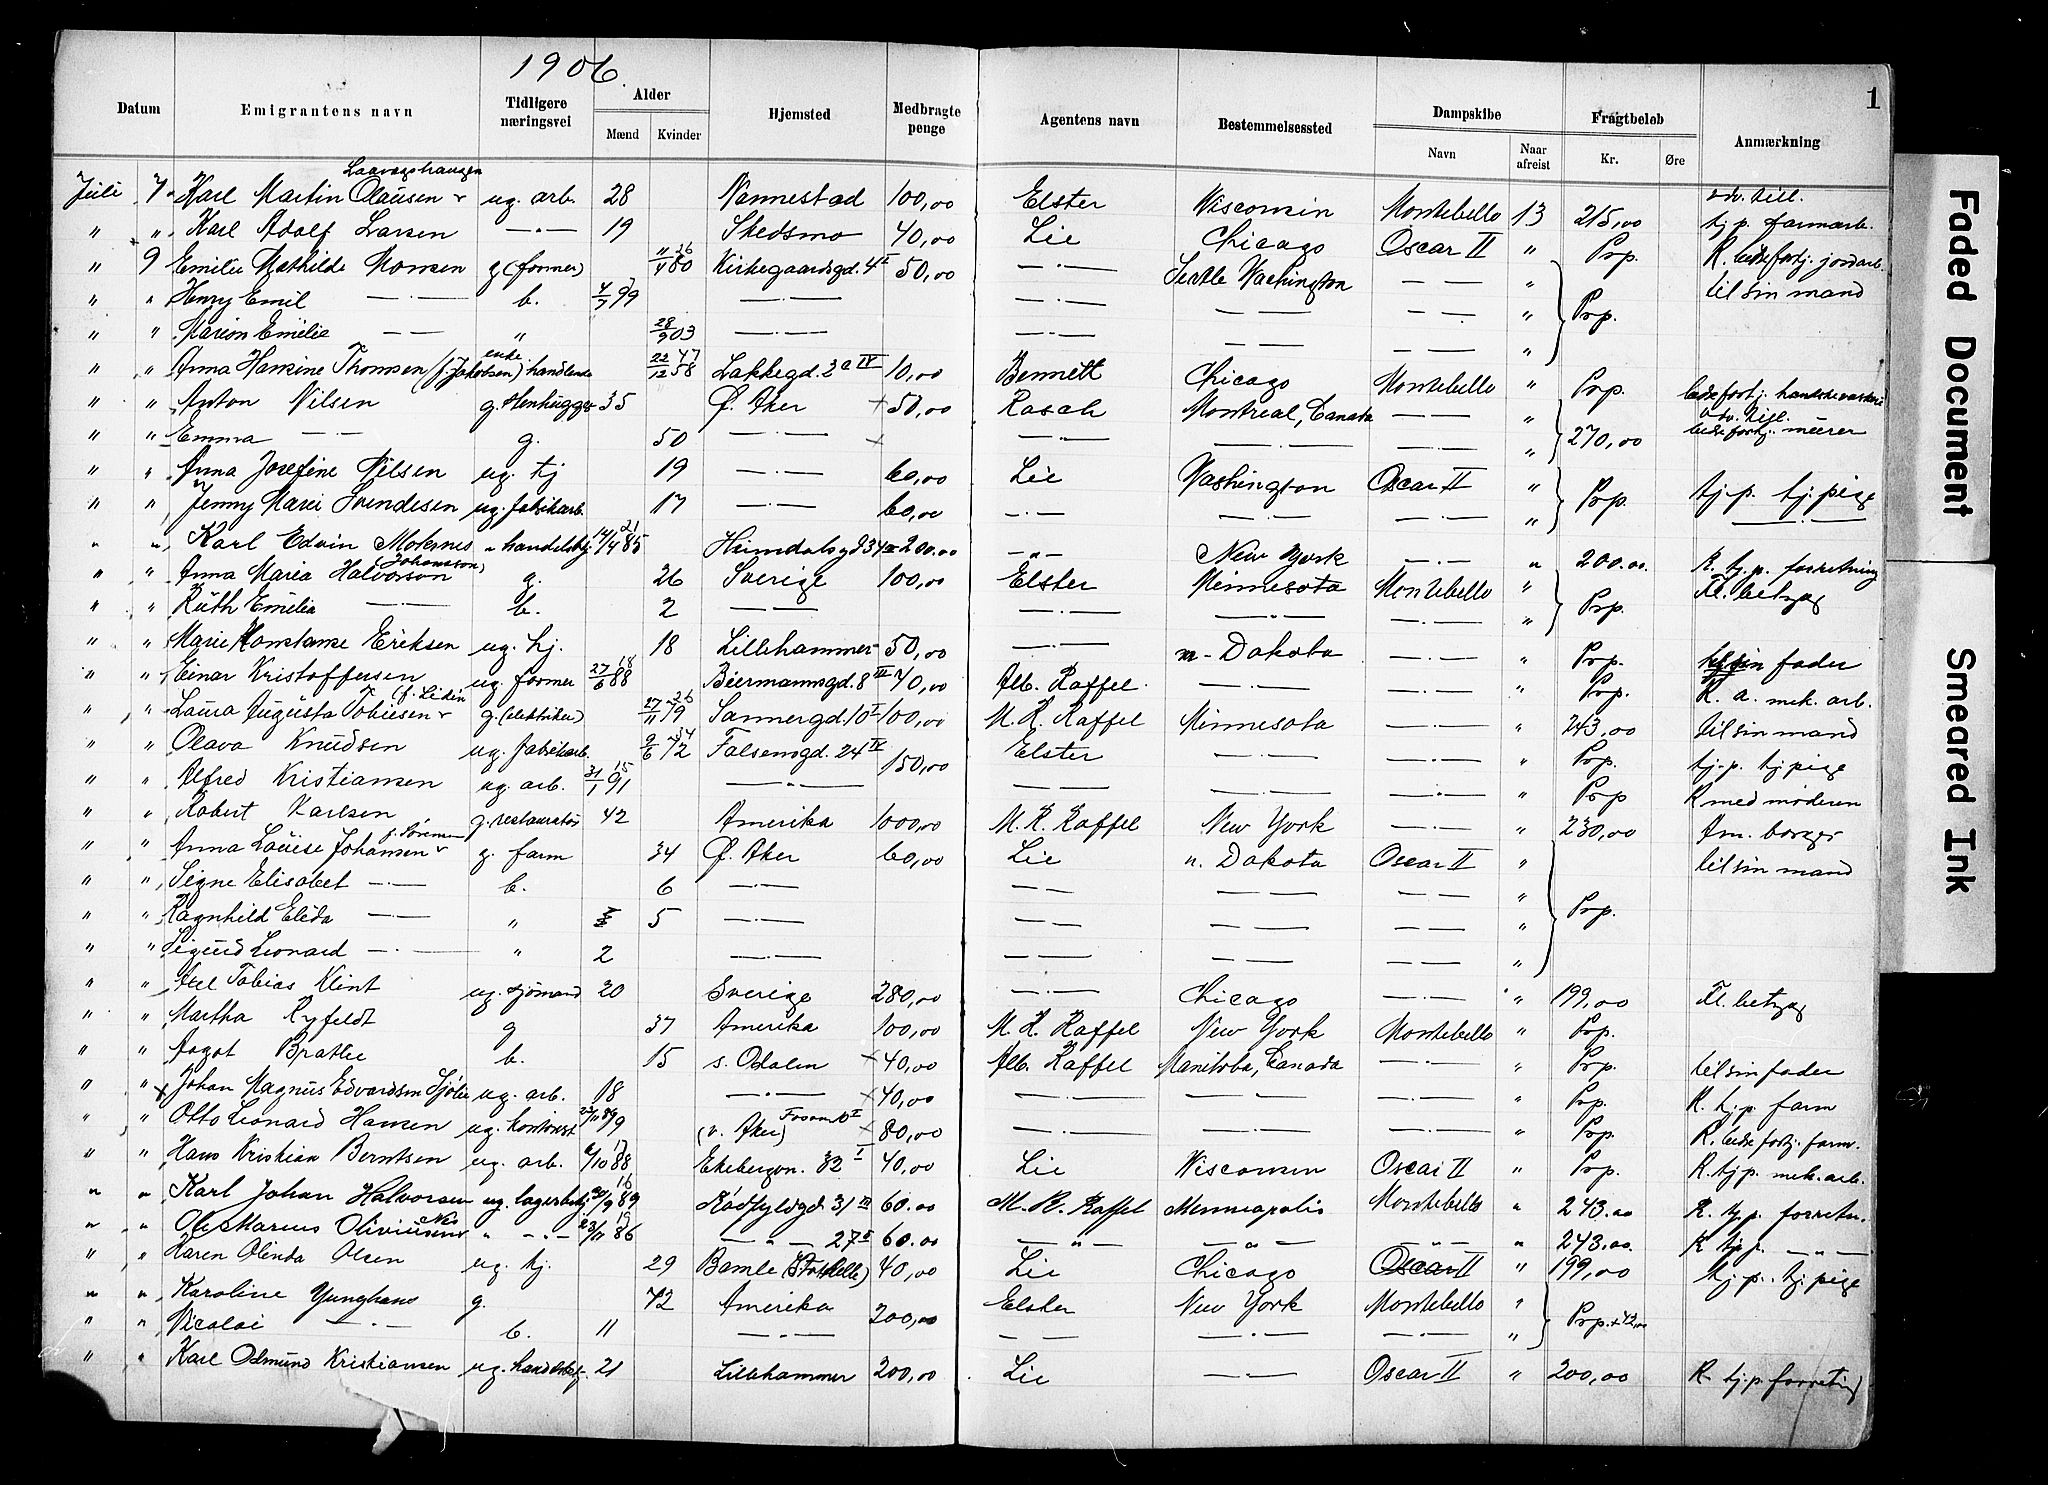 1906.
1
Datum | Emigrantens navn | Tidligere næringsvei | Alder Mænd | Kvinder | Hjemsted | Medbragte penge | Agentens navn | Bestemmelsessted | Dampskibe Navn | Naar afreist | Fragtbeløb Kr. | Øre | Anmærkning
Juli 7 Karl Martin Olausen Laavegshaugen ug. arb. 28 Nannestad 100,00 Elster Wisconsin Montebello 13 215,00 udv. till. tj. p. farmarb.
" " Karl Adolf Larsen — " — 19 Skedsmo 40,00 Lie Chicago Oscar II " Prp. R. bedre fortj. jordarb.
" 9 Emilie Mathilde Monsen g (former) 11/4 80 26 Kirkegaardsgd. 4 I 50,00 — " — Seatle Washington — — " Prp. til sin mand
" " Henry Emil — " — b. 4/7 99 — " — — " — — — — — "
" " Marion Emilie — — " 28/9 03 — " — — " — — — — — "
" " Anna Hansine Thomsen (f. Jakobsen) enke handlende 22/12 58 47 Lakkegd. 3c IV 10,00 Bennett Chicago Montebello " Prp. bedre fortj.
" " Anton Nilsen g. stenhugger 35 Ø. Aker + 50,00 Rasch Montreal, Canada — — " 270,00 udv. till. bedre fortj. murer
" " Emma — — g. 50 — " — + — " — — " — — — "
" " Anna Josefine Nilsen ug. tj 19 — " — 60,00 Lie Washington Oscar II " Prp. tj. p. tj. pige
" " Jenny Marie Svendsen ug. fabrikarb. 17 — " — 60,00 — " — — " — — " — " — " —
" " Karl Edvin Molsnes " handelsbtj 14/4 85 21 Heimdalsgd 34 III 200.00 — " — New York — " — " 200.00. R. tj. p. forretning
" " Anna Maria Halvorson (Johansson) g. 26 Sverige 100,00 Elster Minnesota Montebello " Prp. Fl. betyg
" " Ruth Emilia — — b. 2 — — — " — — " — — " — "
" " Marie Konstanse Eriksen ug. tj. 18 Lillehammer 50,00 — " — n. Dakota — " — " Prp. til sin fader
" " Einar Kristoffersen ug. former 27/6 88 18 Biermannsgd. 8 III 70,00 Alb. Raffel. — " — — " — " Prp. R. a. mek. arb.
" " Laura Augusta Tobiesen (f. Lidin g. (elektriker) 27/11 79 26 Sannergd. 10 I 100,00 M. R. Raffel Minnesota — " — " 243,00 til sin mand
" " Olava Knudsen ug. fabrikarb. 9/6 72 34 Falsensgd. 24 IV 150,00 Elster — " — — " — " Prp. tj. p. tj pige
" " Alfred Kristiansen ug. arb. 31/1 91 15 — " — — — — " — — " — " Prp R med moderen
" " Robert Karlsen g. restauratør 42 Amerika 1000,00 M. R. Raffel New York — " — " 230,00 Am. borger
" " Anna Louise Johansen f. Sørensen g. farm 34 Ø. Aker 60,00 Lie n. Dakota Oscar II " Prp. til sin mand
" " Signe Elisabet — " — b. 6 — " — — — — " — — " — "
" " Ragnhild Elida — " — " 5 — " — — — — " — — " — "
" " Sigurd Leonard — " — " 2 — " — — — — — — — "
" " Axel Tobias Klint ug. sjømand 20 Sverige 280,00 — " — Chicago — " — " 199,00 Fl. betyg
" " Martha Ryfeldt g 37 Amerika 100,00 M. R. Raffel New York Montebello " Prp.
" " Aagot Bratlie b. 15 s. Odalen + 40,00 Alb. Raffel Manitoba, Canada — " — " Prp. til sin fader
" " Johan Magnus Edvardsen Sjølie ug. arb. 18 — " — + 40,00 — " — — " — — " — " Prp. R. tj. p. farm
" " Otto Leonard Hansen ug. kontorist 23/11 89 (v. Aker) + 80,00 — " — — " — — " — " Prp. R. bedre fortj. farm.
" " Hans Kristian Berntsen ug. arb. 6/10 88 17 Ekebergvn. 32 I 40,00 Lie Wisconsin Oscar II " Prp. R. tj. p. mek. arb.
" " Karl Johan Halvorsen ug. lagerbetj. 20/9 89 16 Rådfyldgd 31 III 60.00 M. R. Raffel Minneapolis Montebello " 243.00 R. tj. p. forretn.
" " Ole Marius Oliviusen Nes " — " — 23/11 86 19 — " — 27 II 60.00 — " — — " — — " — " 243.00. R tj. p. — " —
" " Karen Olinda Olsen ug. tj. 29 Bamle (Stathelle) 40,00 Lie Chicago Oscar II " 199,00 tj. p. tj. pige
" " Karoline Yunghans g. 72 Amerika 200,00 Elster New York Montebello " Prp. + 42,00
" " Nicolai — " — b. 11 — " — — — — " — — " — "
" " Karl Osmund Kristiansen ug. handelsbtj. 21 Lillehammer 200,00 Lie — " — Oscar II " 200,00 R. tj. p. forretng
Faded Document
Smeared Ink